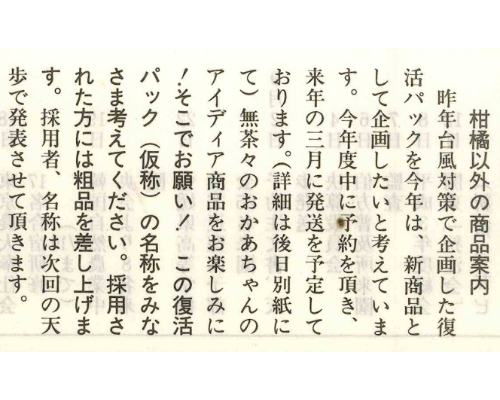 柑橘以外の商品案内
昨年台風対策で企画した復
活パックを今年は　新商品と
して企画したいと考えていま
す。今年度中に予約を頂き、
来年の三月に発送を予定して
おります。（詳細は後日別紙に
て）無茶々のおかあちゃんの
アイディア商品をお楽しみに
！そこでお願い！　この復活
パック（仮称）の名称をみな
さま考えてください。採用さ
れた方には粗品を差し上げま
す。採用者、名称は次回の天
歩で発表させて頂きます。